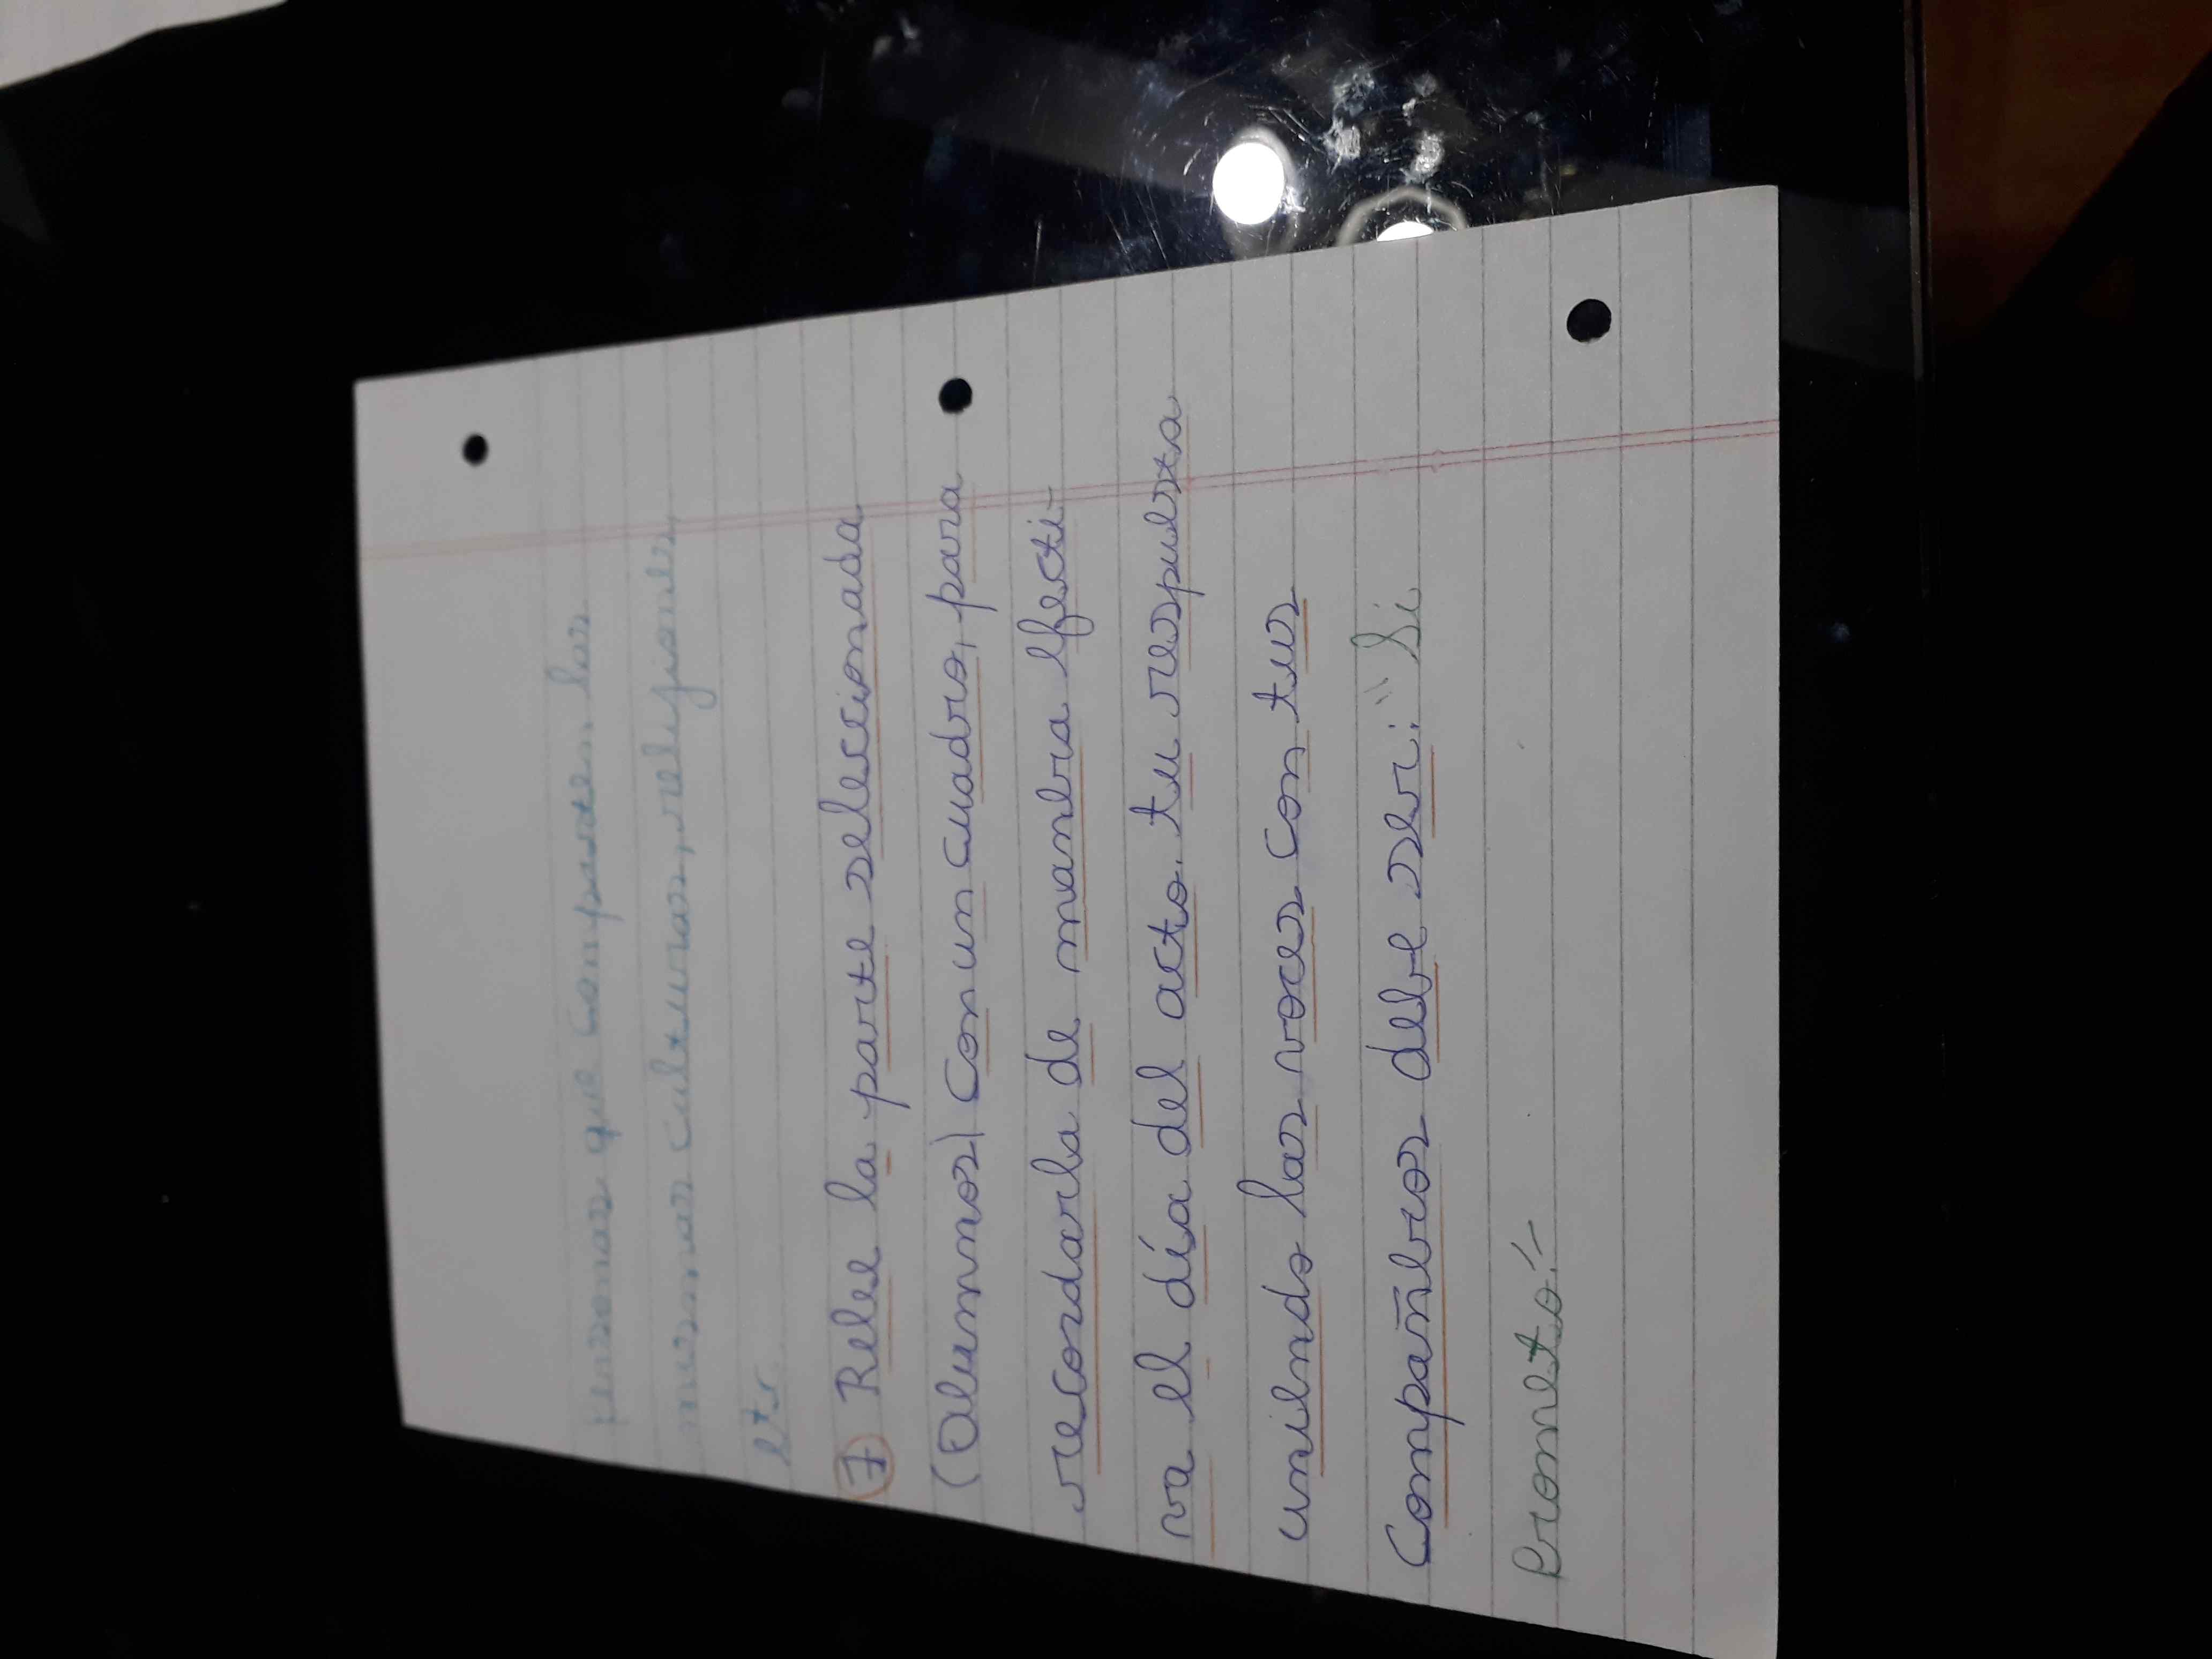 personas que comparten las
mismas culturas, religiones,
etc.
7 Relee la parte seleccionada
(Alumnos) con un cuadro, para
recordarla de manera efecti-
va el día del acto. tu respuesta
uniendo las voces con tus
Compañeros debe ser: "Si
Prometo!-